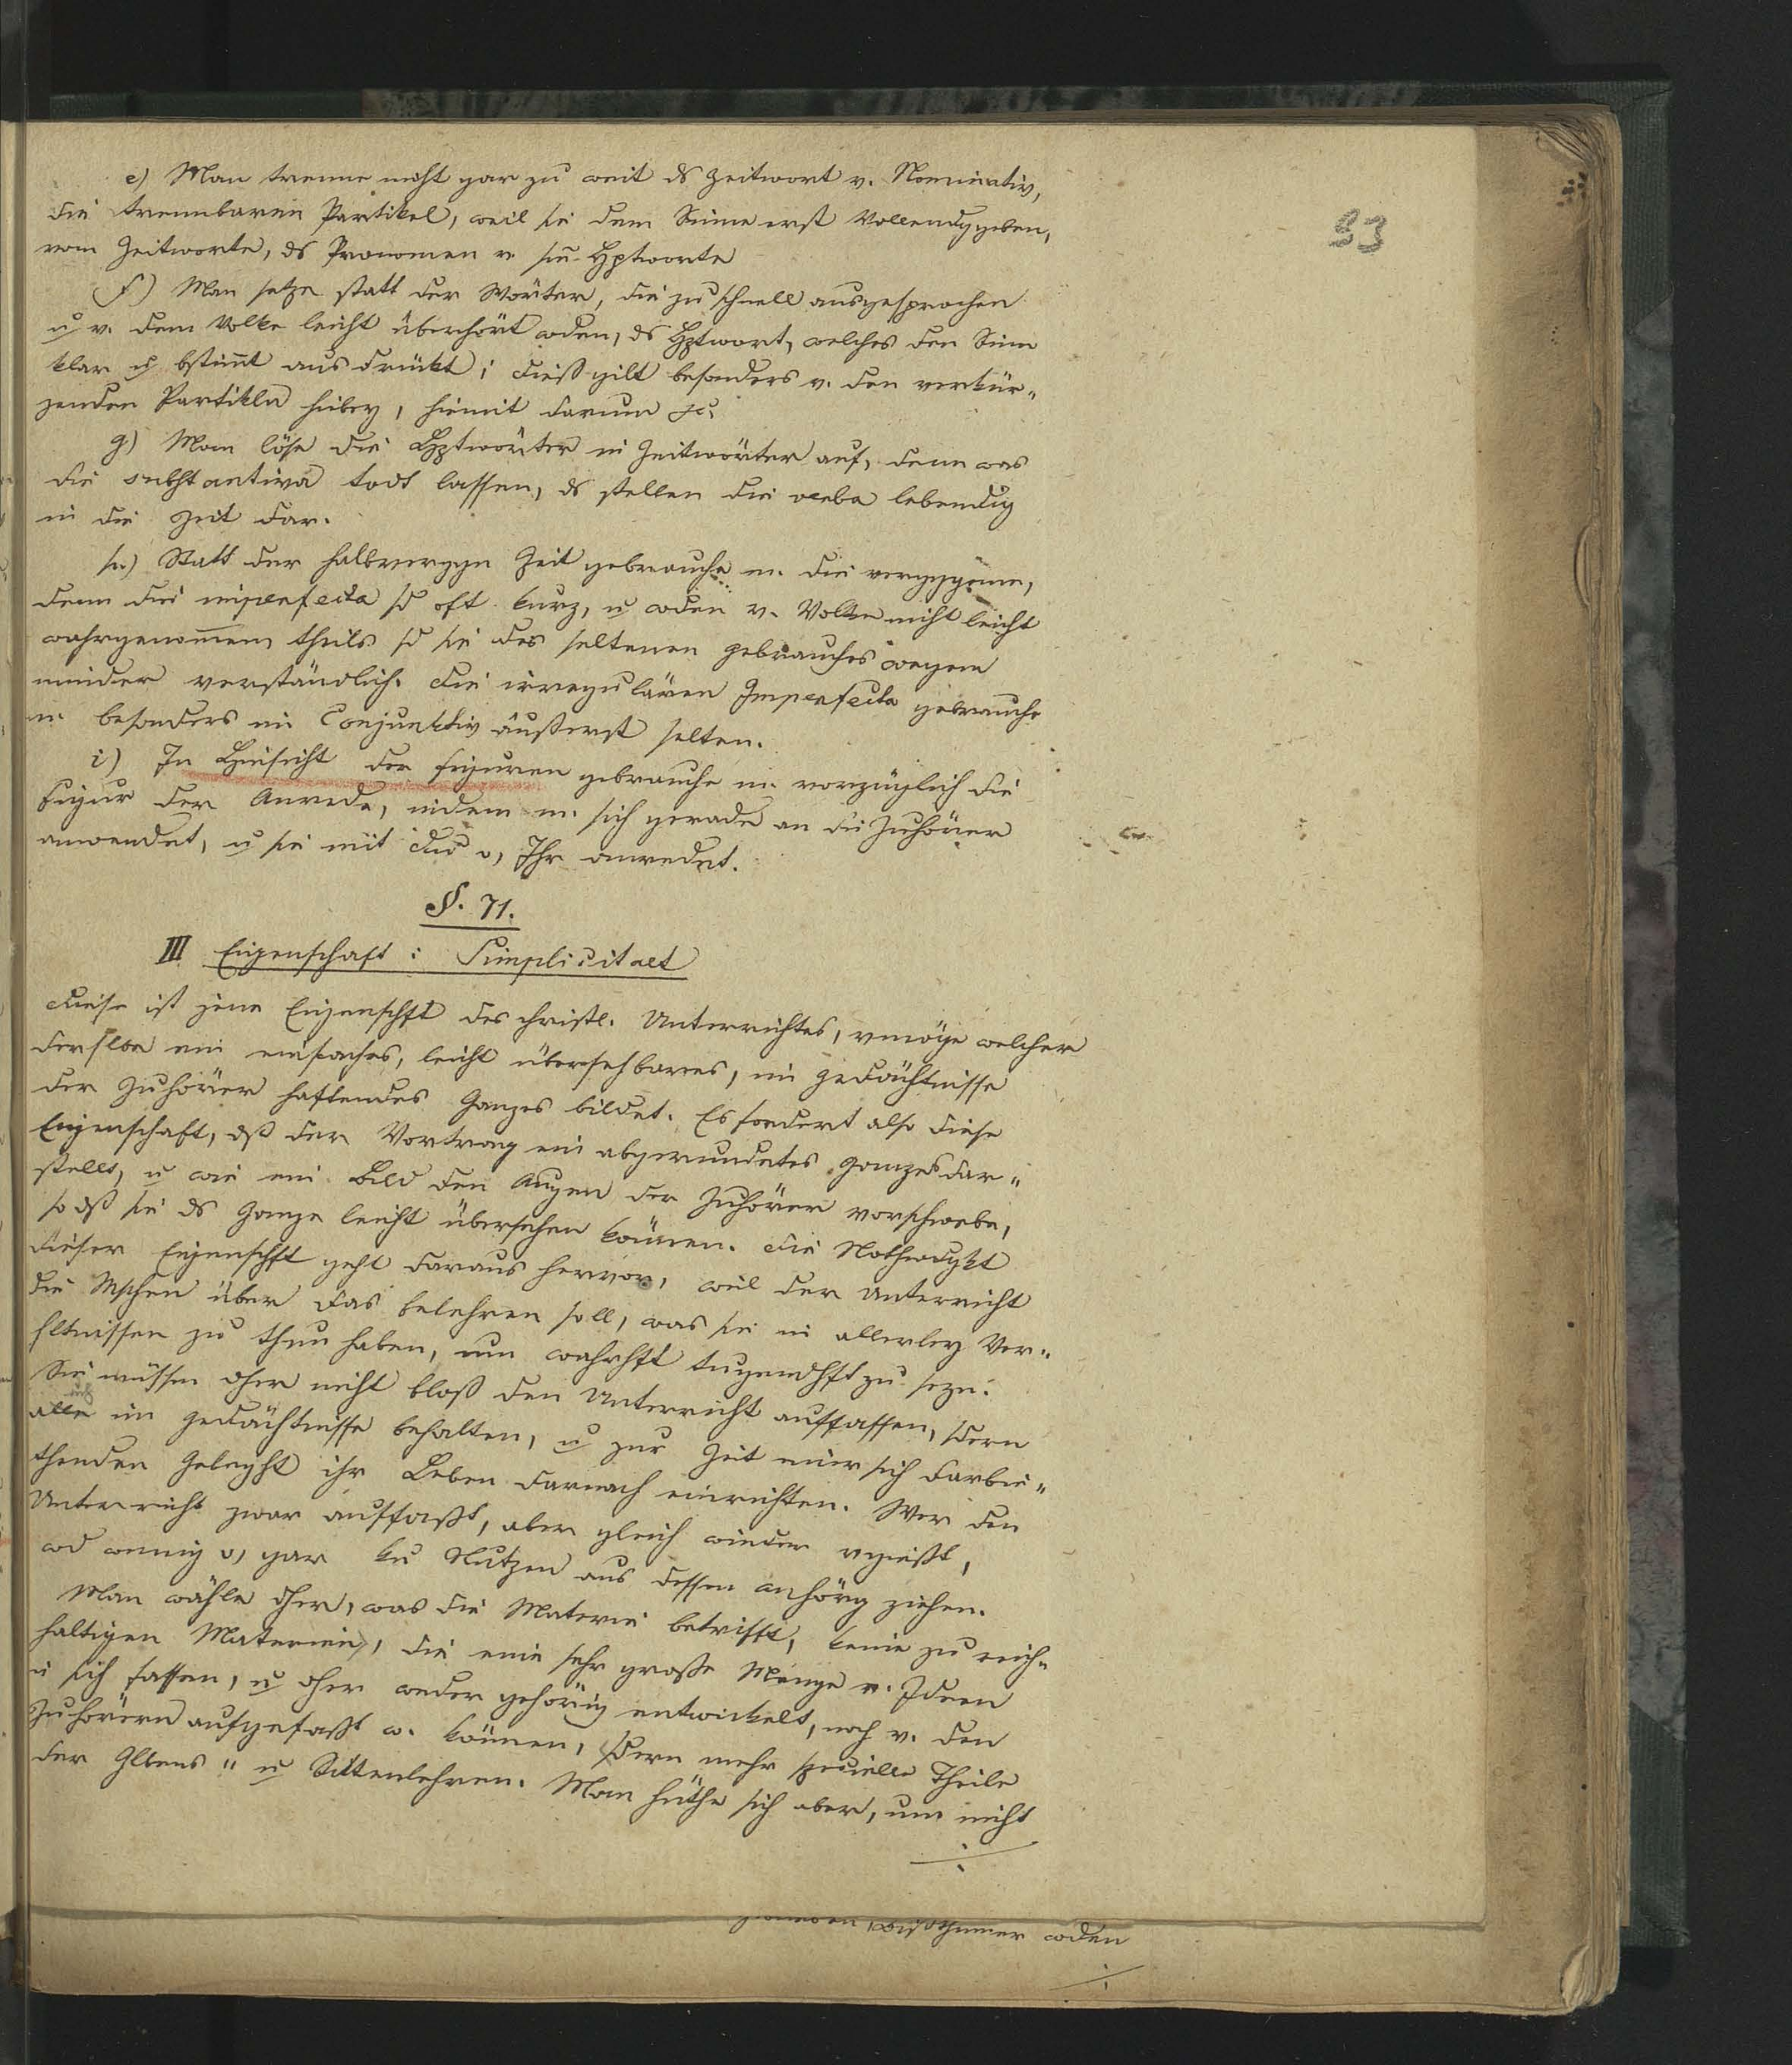 33
e) Man trenne nicht gar zu weit ds Zeitwort v. Nominativ,
die trennbaren Partikel, weil sie dem Sinne erst Vollendg geben,
vom Zeitworte, ds Pronomen v. sm Hptworte
f) Man setze statt der Wörter, die zu schnell ausgesprochen
u v. dem Volke leicht überhört wden, ds Hptwort, welches den Sinn
klar u bstimt ausdrückt; dieß gilt besonders v. den verkür„
zenden Partikeln hiebey, hiemit darum p.
g) Man löse die Hptwörter in Zeitwörter auf, denn was
die substantiva todt lassen, ds stellen die verba lebendig
in die Zeit dar.
h) Statt der halbverggn Zeit gebrauche m. die verggene,
denn die imperfecta sd oft kurz, u wden v. Volke nicht leicht
wahrgenomen, theils sd sie des seltenen Gebrauches wegen
minder verständlich. Die irregulären Imperfecta gebrauche
m. besonders im Conjunktiv äußerst selten.
i) In Hinsicht der Figuren gebrauche m. vorzüglich die
Figur der Anrede, indem m. sich gerade an die Zuhörer
anwendet, u sie mit Du o, Ihr anredet.
§. 71.
III Eigenschaft: Simplicitaet
Diese ist jene Eigenschft des christl. Unterrichtes, vmöge welcher
derslbe ein einfaches, leicht übersehbares, im Gedächtnisse
der Zuhörer haftendes Ganzes bildet. Es fordert also diese
Eigenschaft, dß der Vortrag ein abgerundetes Ganzes dar„
stelle, u wie ein Bild den Augen der Zuhörer vorschwebe,
so dß sie ds Ganze leicht übersehen können. Die Nothwdgkt
dieser Eigenschft geht daraus hervor, weil der Unterricht
die Mschen über das belehren soll, was sie in allerley Ver„
hltnissen zu thun haben, um wahrhft tugendhft zu seyn.
Sie müssen dher nicht bloß den Unterricht auffassen, sdern
auch
alle im Gedächtnisse behalten, u zur Zeit einer sich darbie„
thenden Geleght ihr Leben darnach einrichten. Wer den
Unterricht zwar auffaßt, aber gleich wieder vgießt,
wd wenig o, gar kn Nutzen aus dessen Anhörg ziehen.
Man wähle dher, was die Materie betrifft, keine zu reich„
haltigen Materien, die eine sehr große Menge v. Ideen
in sich fassen, u dher weder gehörig entwickelt, noch v. den
Zuhörern aufgefaßt w. können, sdern mehr specielle Theile
der Glbens„ u Sittenlehren. Man hüthe sich aber, um nicht
wden